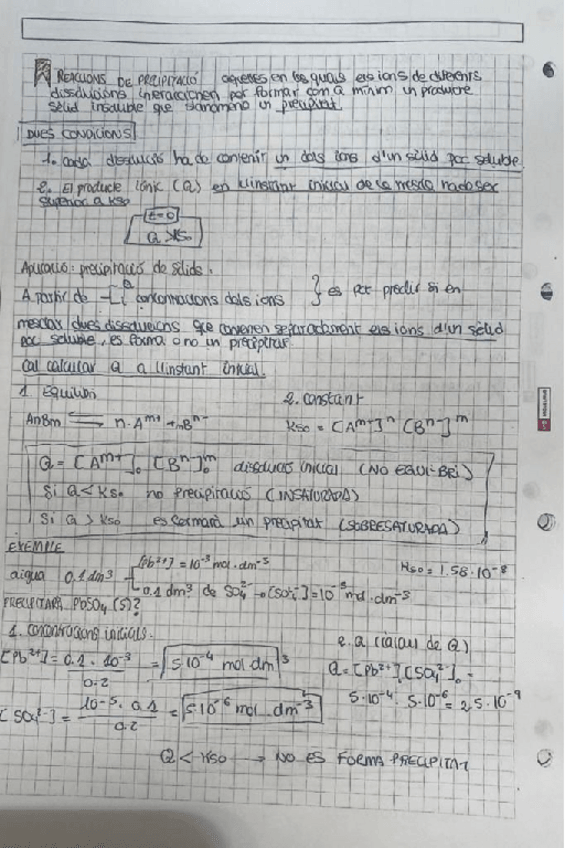 REACCIONS DE PRECIPITACIÓ aquestes en les quals els ions de diferents
dissolucions interaccionen per formar com a mínim un producte
sòlid insoluble que s'anomena un precipitat.
DUES CONDICIONS
1. cada dissolució ha de contenir un dels ions d'un sòlid poc soluble
2. El producte iònic (Q) en l'instant inicial de la mescla ha de ser
superior a Kso
t=0
Q > Kso
Aplicació: precipitació de sòlids.
A partir de concentracions dels ions } es pot predir si en
mesclar dues dissolucions que contenen separadament els ions d'un sòlid
poc soluble, es forma o no un precipitat
Cal calcular Q a l'instant inicial.
1. Equilibri
2. constant
AnBm ⇌ n·A^m+ + mB^n-
Kso = [A^m+]^n [B^n-]^m
Q = [A^m+]₀ [B^n-]₀^m dissolució inicial (NO EQUILIBRI)
Si Q < Kso no precipitació (INSATURADA)
Si Q > Kso es formarà un precipitat (SOBRESATURADA)
EXEMPLE
[Pb²⁺] = 10⁻³ mol·dm⁻³
Kso = 1.58·10⁻⁸
aigua 0.1 dm³
0.1 dm³ de SO₄²⁻ → [SO₄²⁻] = 10⁻⁵ mol·dm⁻³
PRECIPITARÀ PbSO₄ (s)?
1. concentracions inicials.
2. Q (càlcul de Q)
[Pb²⁺] = 0.1 · 10⁻³ / 0.2 = 5·10⁻⁴ mol dm⁻³
Q = [Pb²⁺]₀ [SO₄²⁻]₀ =
5·10⁻⁴ · 5·10⁻⁶ = 2,5·10⁻⁹
[SO₄²⁻] = 10⁻⁵ · 0.1 / 0.2 = 5·10⁻⁶ mol dm⁻³
Q < Kso → NO ES FORMA PRECIPITAT